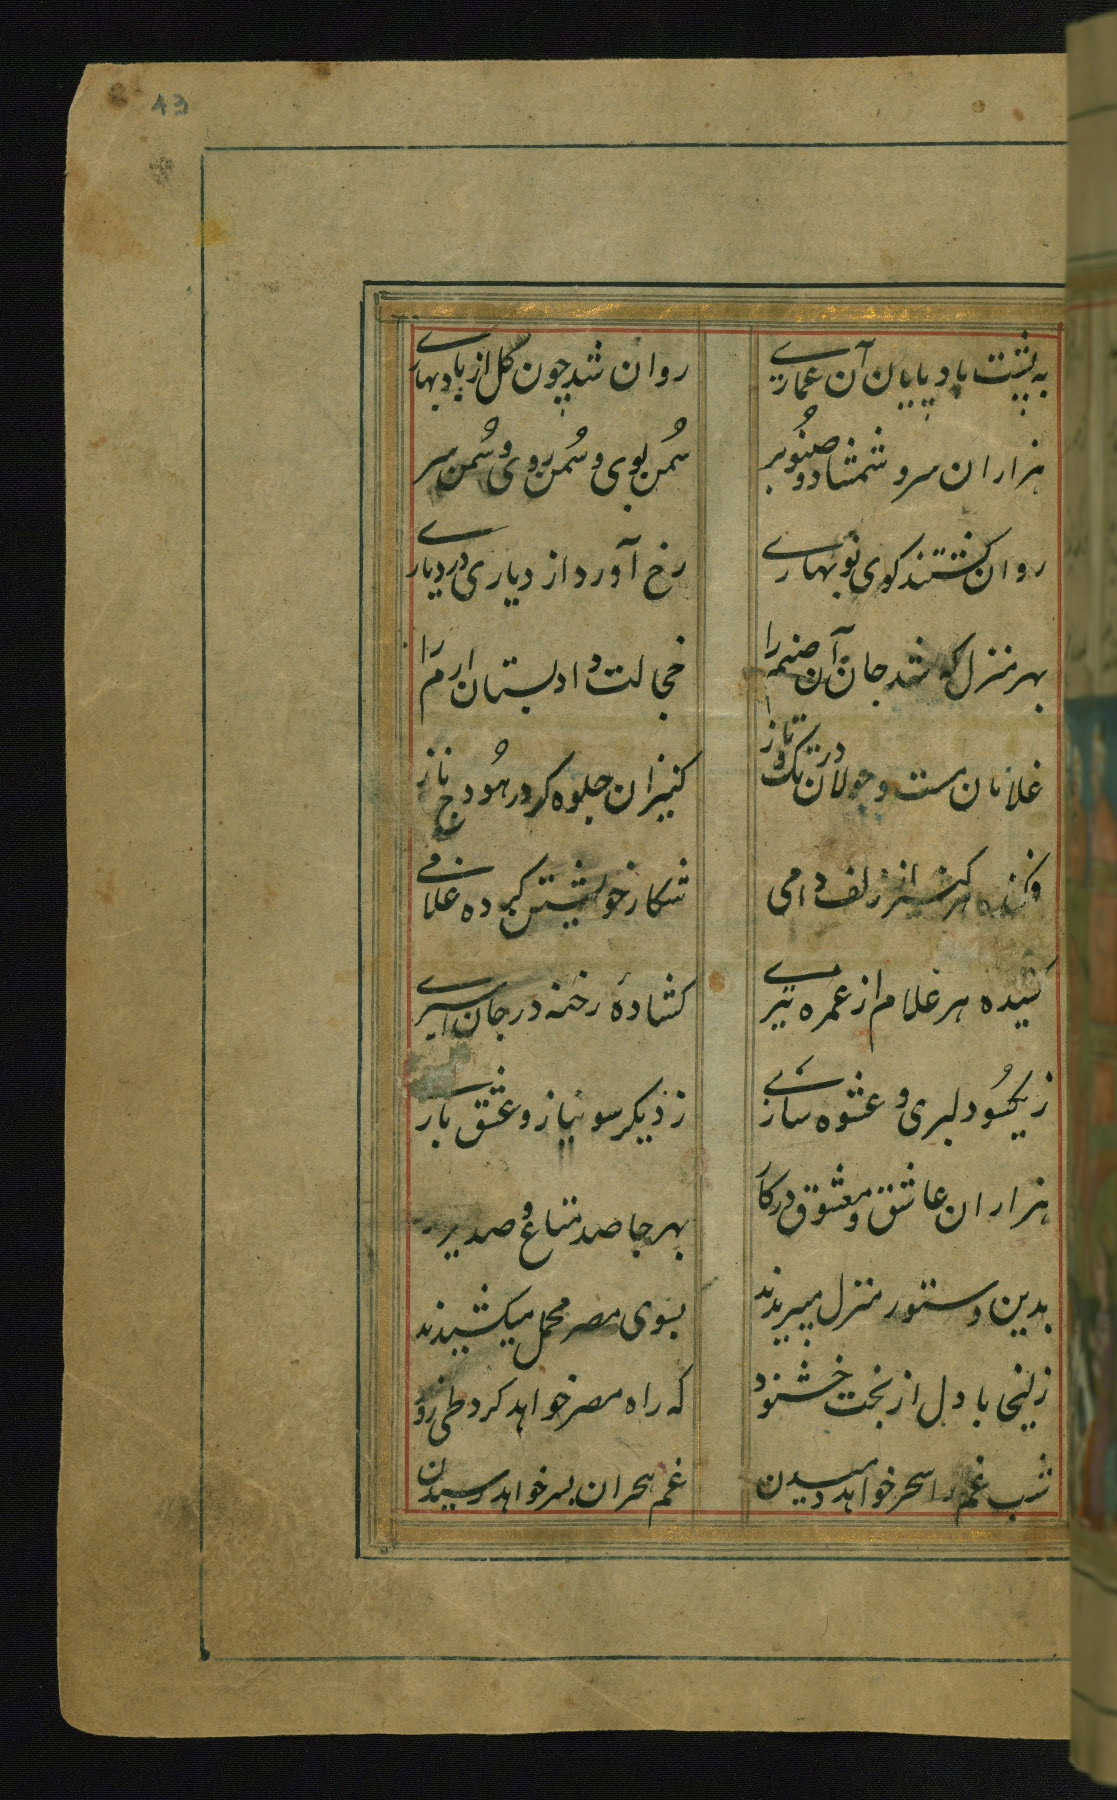 43
به پشت بادپایان آن عماری
روان شد چون گل از باد بهاری
هزاران سرو شمشاد و صنوبر
سمن بوی و سمن روی و سمن سر
روان گشتند کوی نوبهاری
رخ آورد از دیاری در دیاری
بهر منزل که شد جان آن صنم را
خجالت داد بستان ارم را
غلامان مست و جولان در تک و تاز
کنیزان جلوه کر در هودج ناز
فکنده هر کنیز از زلف دامی
شکار خویشتن کرده غلامی
کشیده هر غلام از غمزه تیری
کشاده رخنه در جان اسیری
ز یکسو دلبری و عشوه سازی
ز دیکر سو نیاز و عشق بازی
هزاران عاشق و معشوق در کار
بهر جا صد متاع و صد
بدین دستور منزل میبریدند
بسوی مصر محمل میکشیدند
زلیخا با دل از بخت خشنود
که راه مصر خواهد کرد طی زود
شب غم را سحر خواهد دمیدن
غم هجران بسر خواهد رسیدن